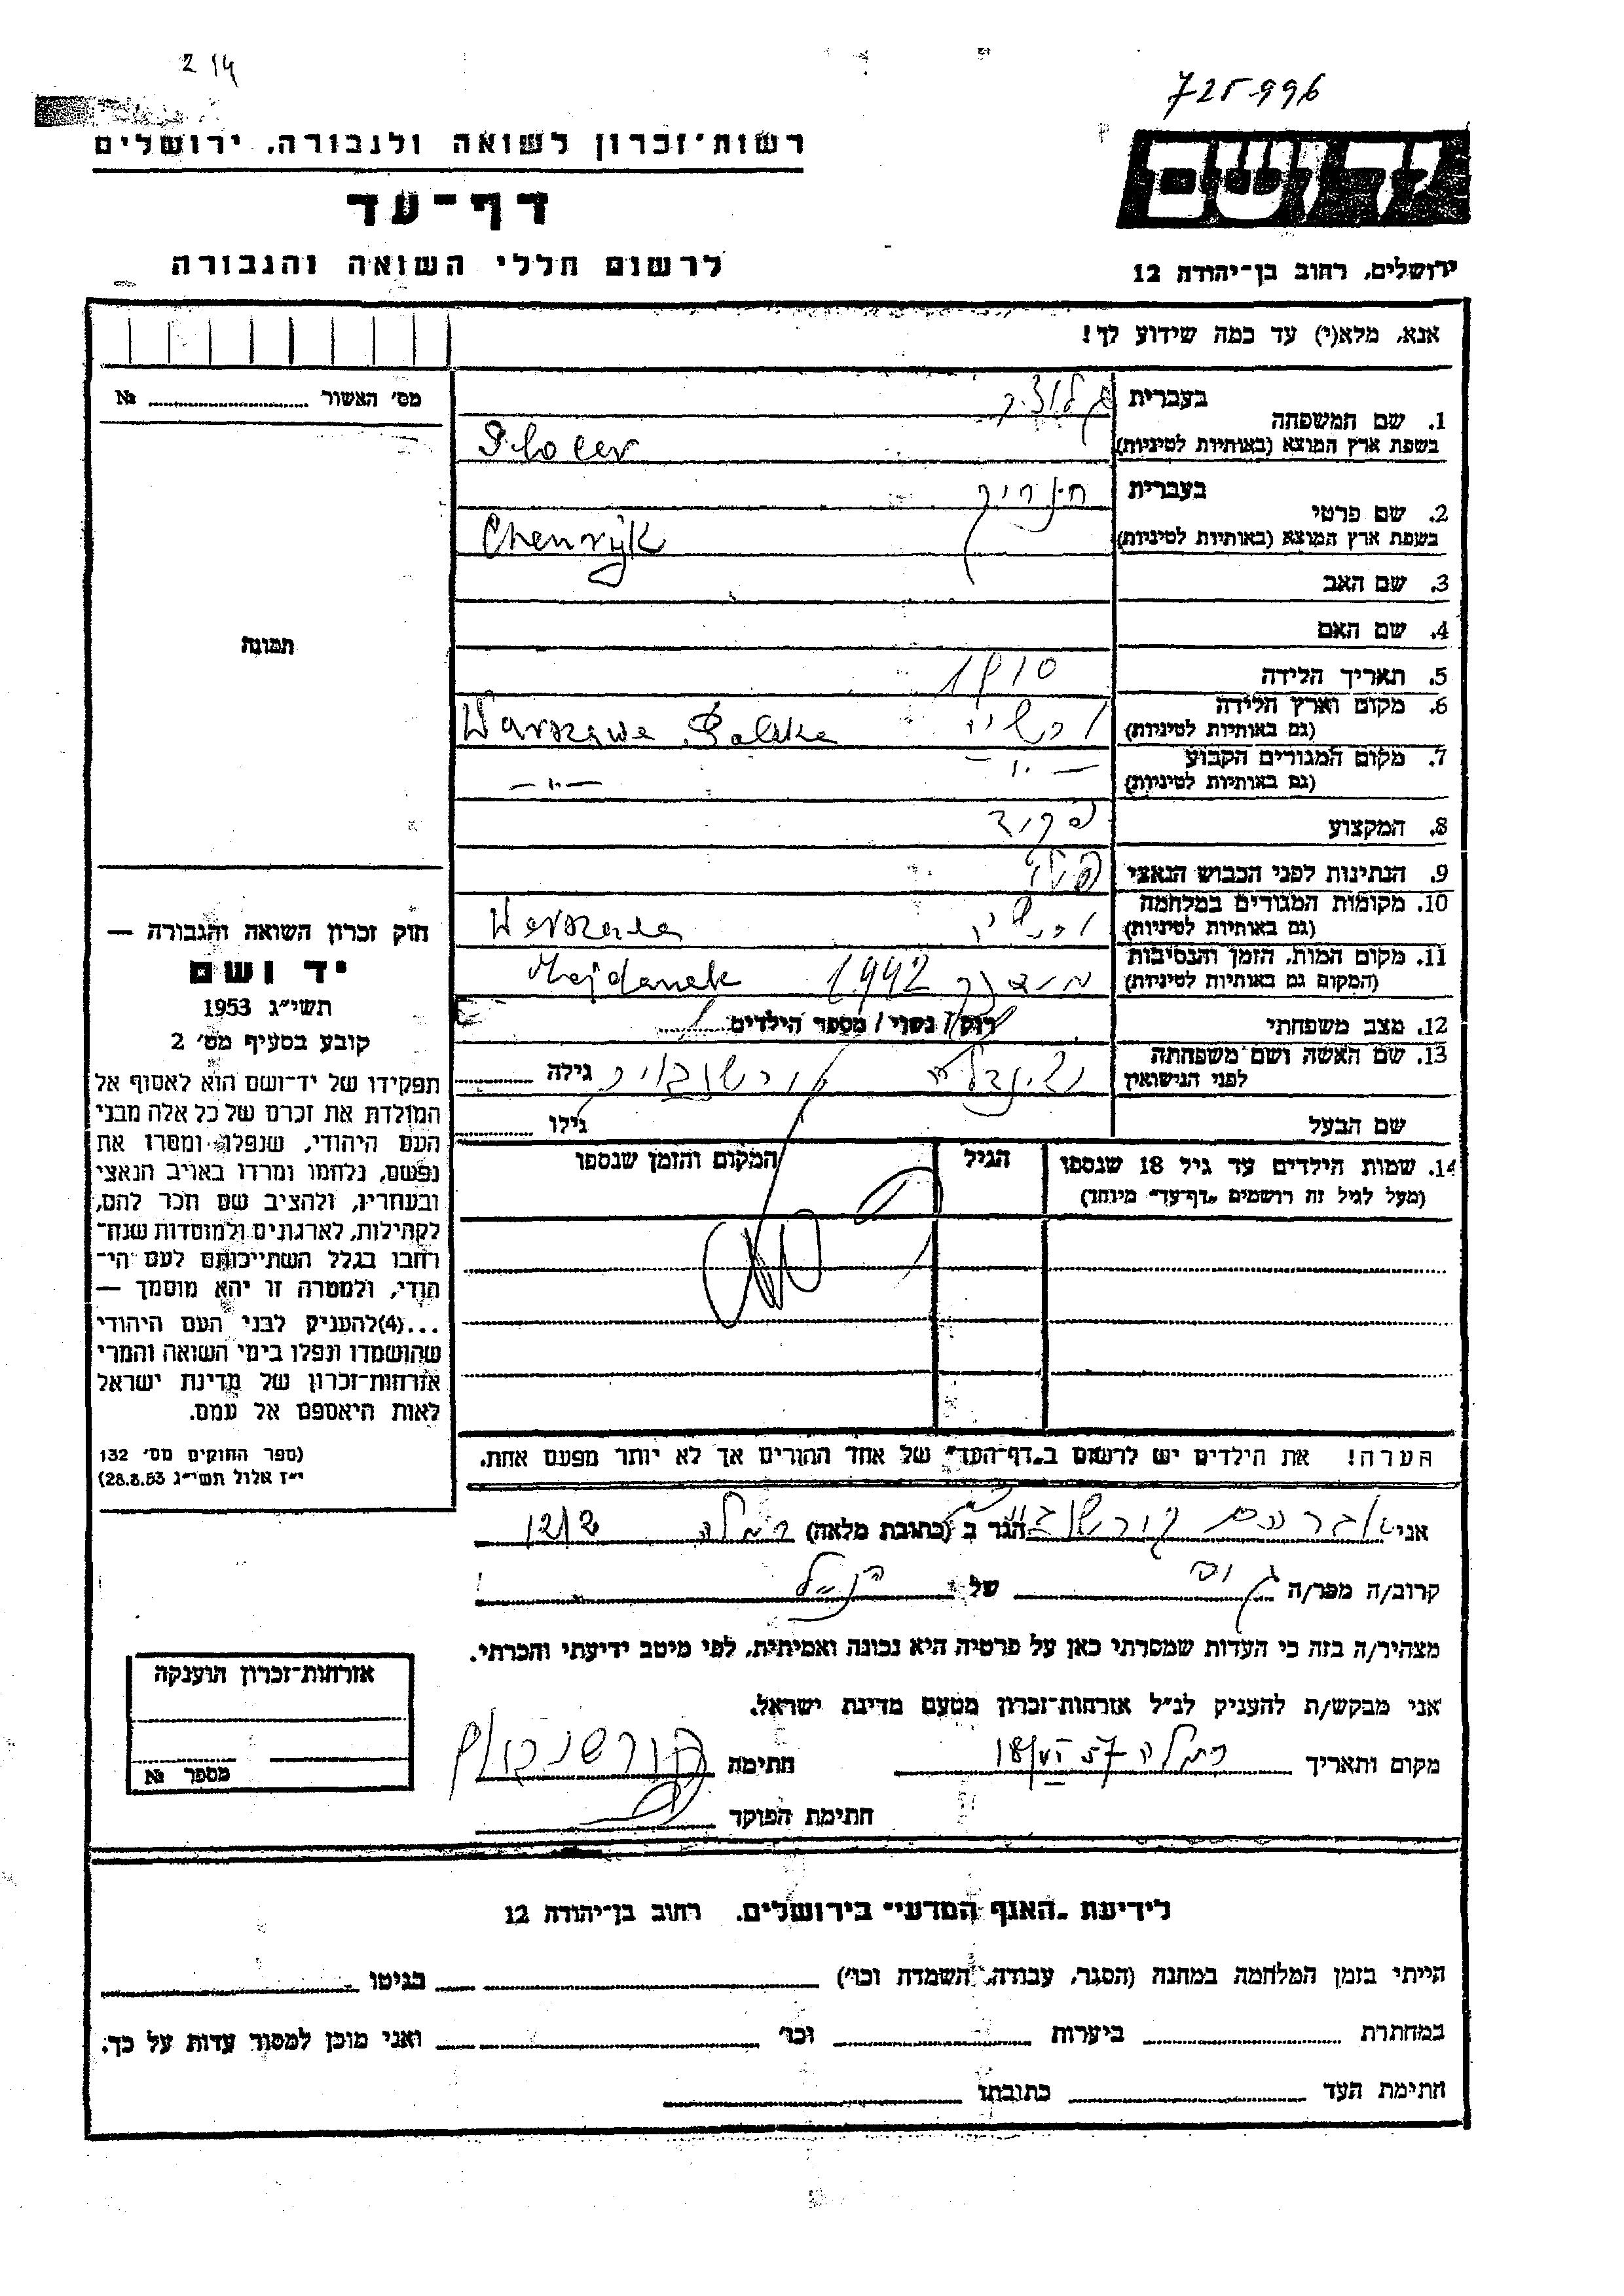 2 14
725996
רשות־זכרון לשואה ולגבורה, ירושלים
יד ושם
דף־עד
לרשום חללי השואה והגבורה
ירושלים, רחוב בן־יהודה 12
אנא, מלא(י) עד כמה שידוע לך!
מס' האשור № 
1. שם המשפחה
בעברית
בשפת ארץ המוצא (באותיות לטיניות)
2. שם פרטי
בעברית חנריק
בשפת ארץ המוצא (באותיות לטיניות) Chenryk
3. שם האב
4. שם האם
5. תאריך הלידה 1910
6. מקום וארץ הלידה
(גם באותיות לטיניות) ורשה Warszawa, Polska
7. מקום המגורים הקבוע
(גם באותיות לטיניות) —"— —"—
8. המקצוע פקיד
9. הנתינות לפני הכבוש הנאצי
10. מקומות המגורים במלחמה
(גם באותיות לטיניות) Warszawa
11. מקום המות, הזמן והנסיבות
(המקום גם באותיות לטיניות) מידנק 1942 Majdanek
12. מצב משפחתי רוק / נשוי / מספר הילדים
13. שם האשה ושם משפחתה
לפני הנישואין גילה
שם הבעל גילו
14. שמות הילדים עד גיל 18 שנספו
(מעל לגיל זה רושמים „דף־עד" מיוחד)
הגיל
המקום והזמן שנספו
הערה! את הילדים יש לרשום ב„דף־העד" של אחד ההורים אך לא יותר מפעם אחת.
תמונה
חוק זכרון השואה והגבורה —
יד ושם
תשי"ג 1953
קובע בסעיף מס' 2
תפקידו של יד־ושם הוא לאסוף אל
המולדת את זכרם של כל אלה מבני
העם היהודי, שנפלו ומסרו את
נפשם, נלחמו ומרדו באויב הנאצי
ובעוזריו, ולהציב שם וזכר להם,
לקהילות, לארגונים ולמוסדות שנח־
רבו בגלל השתייכותם לעם הי־
הודי, ולמטרה זו יהא מוסמך —
...(4)להעניק לבני העם היהודי
שהושמדו ונפלו בימי השואה והמרי
אזרחות־זכרון של מדינת ישראל
לאות היאספם אל עמם.
(ספר החוקים מס' 132
י"ז אלול תשי"ג 28.8.53)
אני אברהם הגר ב (כתובת מלאה) רמלה 12/2
קרוב/ה מכר/ה גיס של הנ"ל
מצהיר/ה בזה כי העדות שמסרתי כאן על פרטיה היא נכונה ואמיתית, לפי מיטב ידיעתי והכרתי.
אני מבקש/ת להעניק לנ"ל אזרחות־זכרון מטעם מדינת ישראל.
מקום ותאריך רמלה 18/VI 57 חתימה
חתימת הפוקד
אזרחות־זכרון הוענקה
מספר №
לידיעת „האגף המדעי" בירושלים, רחוב בן־יהודה 12
הייתי בזמן המלחמה במחנה (הסגר, עבודה, השמדה וכו') בגיטו
במחתרת ביערות וכו' ואני מוכן למסור עדות על כך.
חתימת העד כתובתו